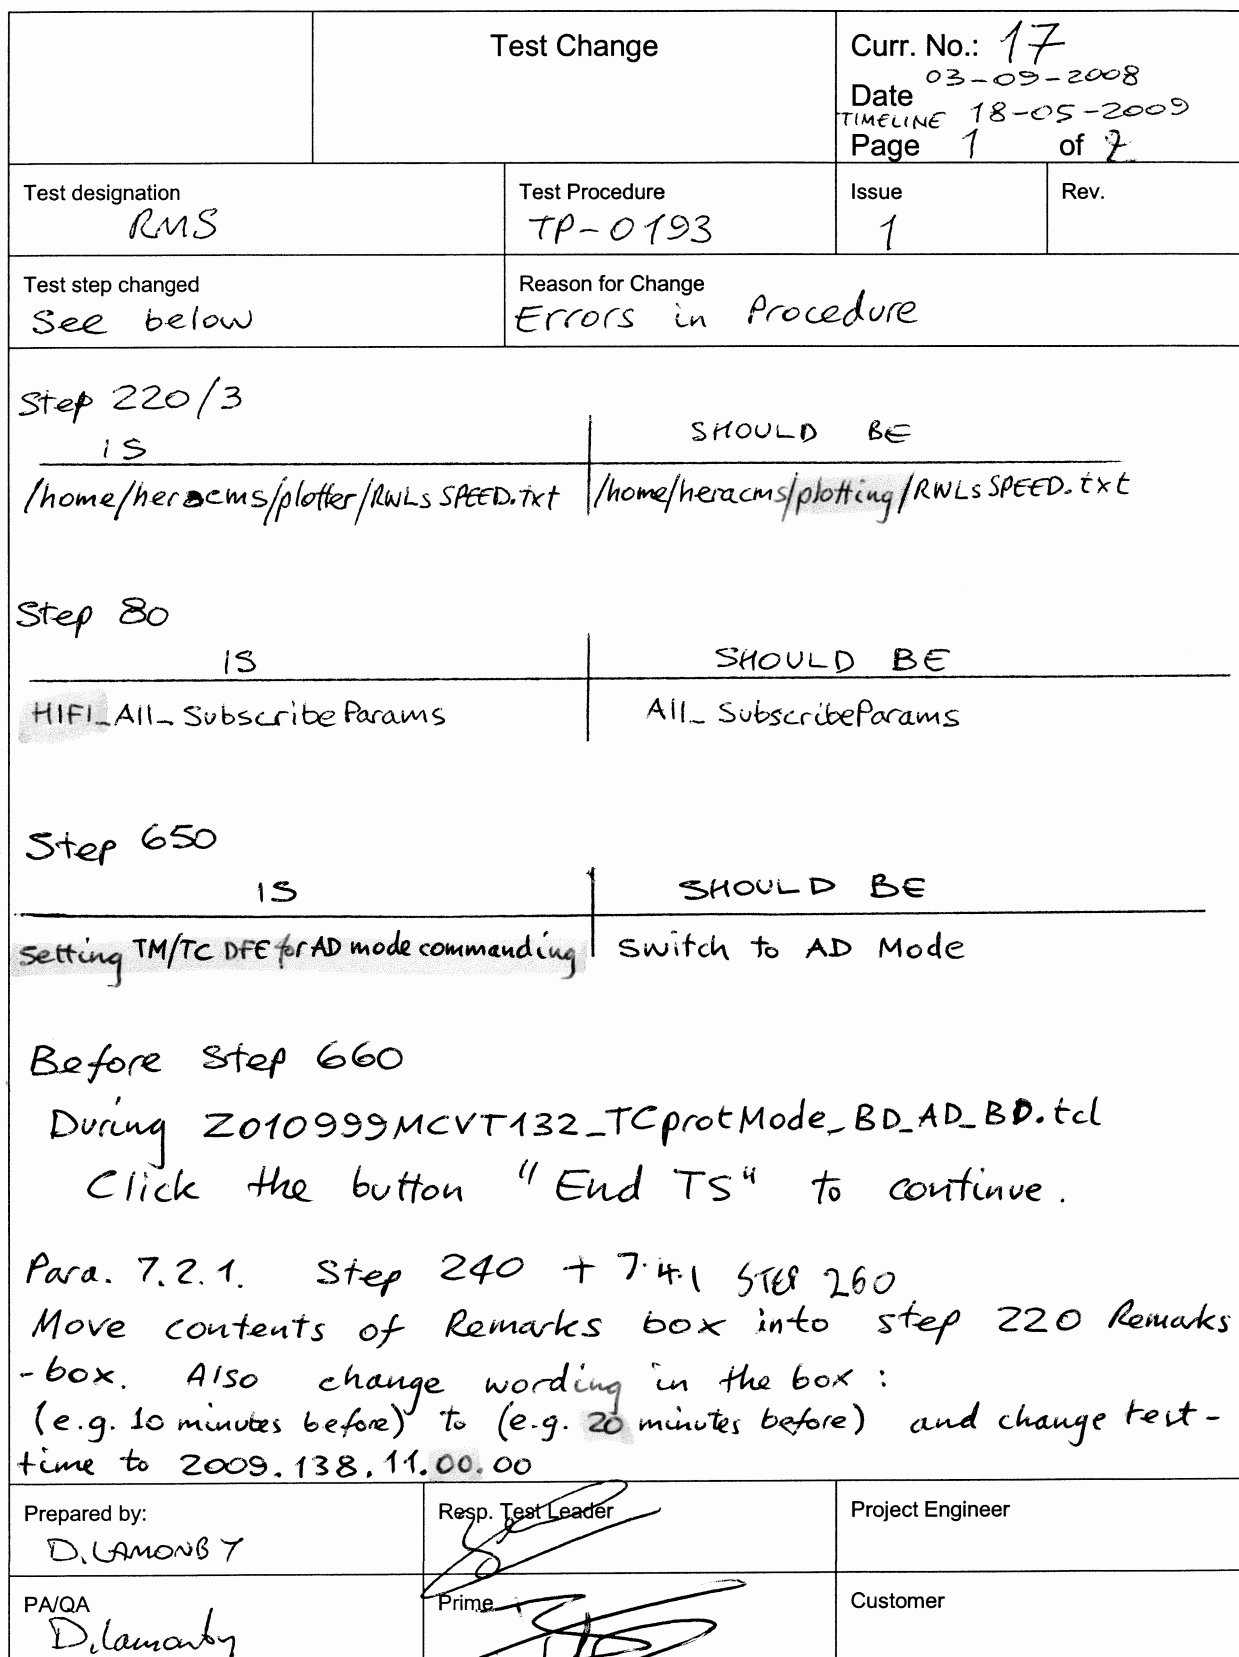 Test Change
Curr. No.: 17
03-09-2008
Date
TIMELINE 18-05-2009
Page 1 of 2
Test designation
RMS
Test Procedure
TP-0193
Issue
1
Rev.
Test step changed
See below
Reason for Change
Errors in Procedure
Step 220/3
IS
SHOULD BE
/home/heracms/plotter/RWLsSPEED.txt
/home/heracms/plotting/RWLsSPEED.txt
Step 80
IS
SHOULD BE
HIFI_All_SubscribeParams
All_SubscribeParams
Step 650
IS
SHOULD BE
Setting TM/TC DFE for AD mode commanding
Switch to AD Mode
Before Step 660
During Z010999MCVT132_TCprotMode_BD_AD_BD.tcl
Click the button "End TS" to continue.
Para. 7.2.1. Step 240 + 7.4.1 STEP 260
Move contents of Remarks box into step 220 Remarks
-box. Also change wording in the box :
(e.g. 10 minutes before) to (e.g. 20 minutes before) and change test-
time to 2009.138.11.00.00
Prepared by:
D. LAMONBY
Resp. Test Leader
Project Engineer
PA/QA
D. Lamonby
Prime
Customer